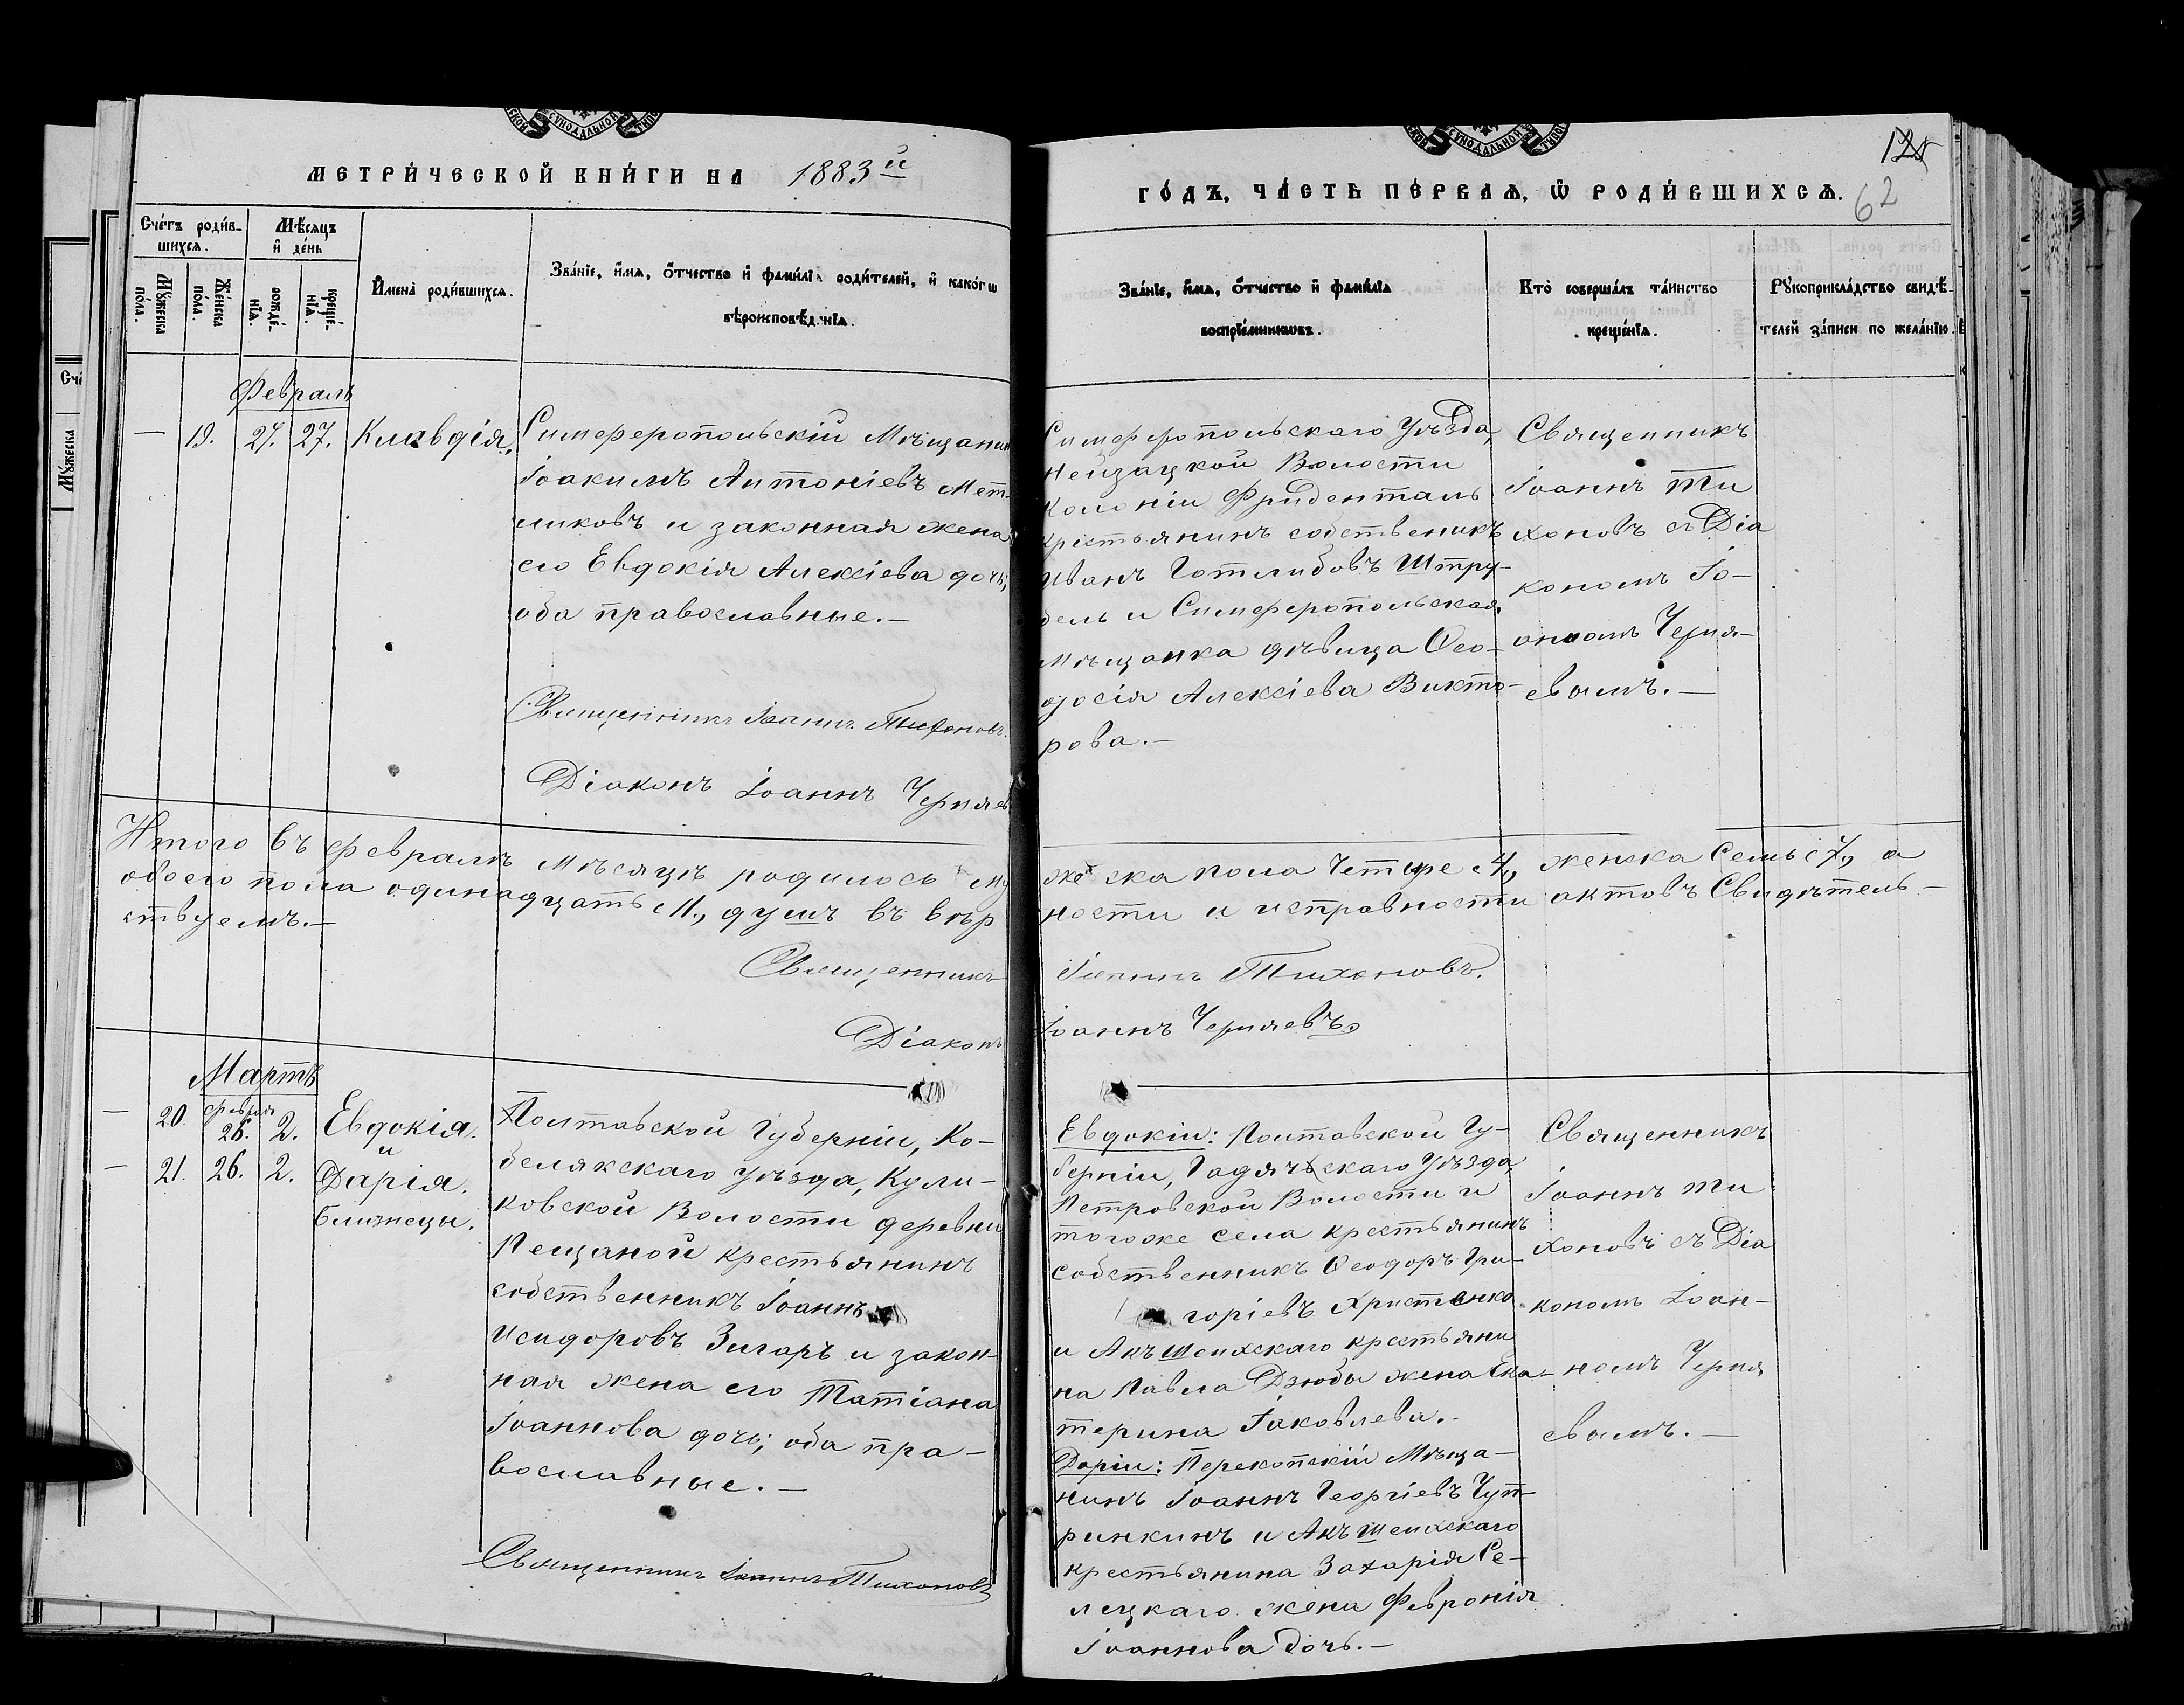 МЕТРИ́ЧЕСКОЙ КНИ́ГИ НА 1883й
ГО́ДЪ, ЧА́СТЬ ПЕ́РВАѦ, Ѡ҆ РОДИ́ВШИХСѦ.
124
62
Сче́тъ роди́в-
шихсѧ.
Мѣ́сѧцъ
и҆ де́нь
Мꙋ́жеска
по́ла.
Же́нска
по́ла.
рожде́-
нїѧ.
креще́-
нїѧ.
И҆мена̀ роди́вшихсѧ.
Зва́нїе, и҆́мѧ, ѻ҆́тчество и҆ фами́лїѧ роди́телей, и҆ како́гѡ
вѣроисповѣ́данїѧ.
Зва́нїе, и҆́мѧ, ѻ҆́тчество и҆ фами́лїѧ
воспрїе́мниковъ.
Кто̀ соверша́лъ та́инство
креще́нїѧ.
Рꙋкоприкла́дство свидѣ́-
телей за́писи по жела́нїю.
Февраль
— 19. 27. 27. Клавдія.
Симферопольскій Мѣщанин
Іоакимъ Антоніевъ Мет-
ликовъ и законная жена
его Евдокія Алексіева дочь;
оба православные.—
Священникъ Іоаннъ Тихоновъ.
Діаконъ Іоаннъ Черняев
Симферопольскаго Уѣзда,
Нейзацкой Волости
Колоніи Фриденталь
крестьянинъ собственикъ
Иванъ Готлибовъ Штру-
бель и Симферопольская
Мѣщанка дѣвица Ѳео-
досія Алексіева Викто-
рова.—
Священникъ
Іоаннъ Ти
хоновъ съ Діа
кономъ Іо-
анномъ Черня-
евымъ.—
Итого въ Февралѣ мѣсяцѣ родилось му жеска пола Четыре 4, женска Семь 7, а
обоего пола одинадцать 11, душъ въ вѣр ности и исправности актовъ Свидѣтель-
ствуемъ.—
Священникъ Іоаннъ Тихоновъ.
Діаконъ Іоаннъ Черняевъ
Мартъ
— 20. февраля 26. 2. Евдокія.
и
— 21. 26. 2. Дарія.
близнецы.
Полтавской Губерніи, Ко-
белякскаго Уѣзда, Кули-
ковской Волости деревни
Пещаной крестьянинъ
собственникъ Іоаннъ
Исидоровъ Зигаръ и закон-
ная жена его Татіана
Іоаннова дочь; оба пра-
вославные.—
Священникъ Іоаннъ Тихоновъ
Евдокіи: Полтавской Гу-
берніи, Гадячскаго Уѣзда
Петровской Волости и
тогоже села крестьянинъ
собственникъ Ѳеодоръ Гри-
горіевъ Христенко
и Акъ шеихскаго крестьяни
на Павла Дзюбы жена Ека-
терина Іаковлева.
Даріи: Перекопскій Мѣща-
нинъ Іоаннъ Георгіевъ Чуп-
ринкинъ и Акъ шеихскаго
крестьянина Захарія Ре-
лецкаго жена Февронія
Іоаннова дочь.—
Священникъ
Іоаннъ Ти
хоновъ съ Діа
кономъ Іоан-
номъ Черня
евымъ.—